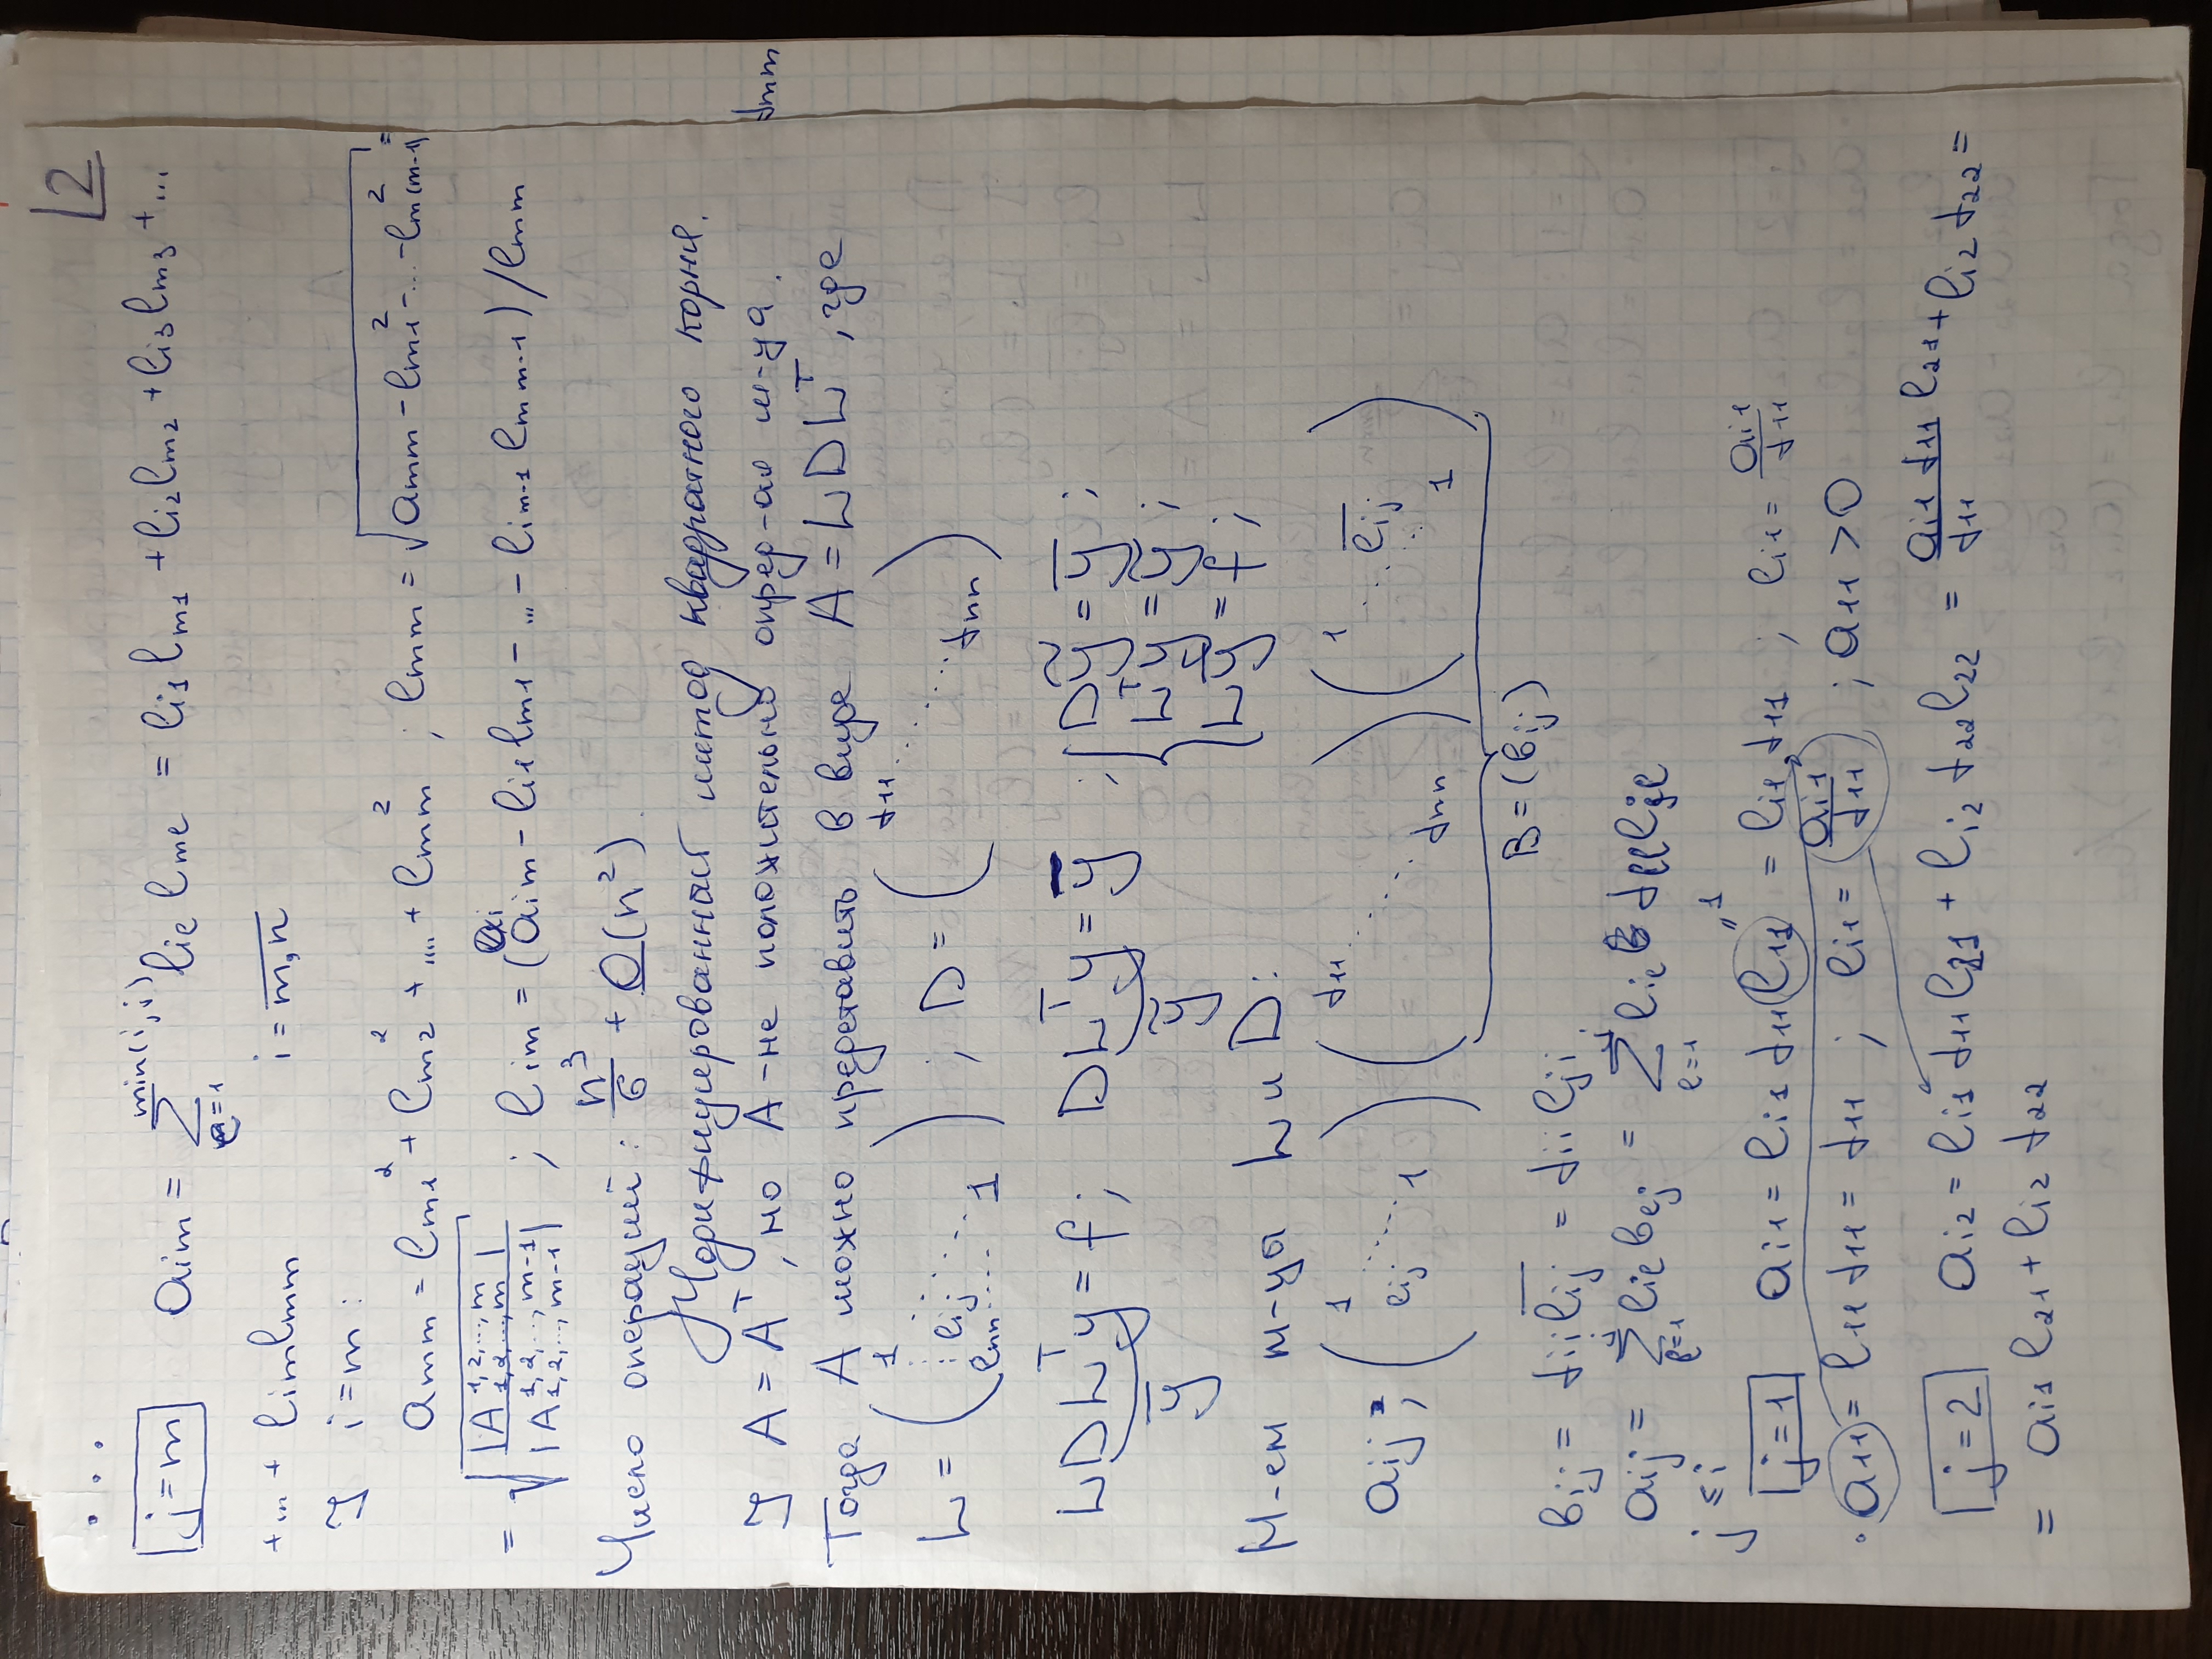 2
. . .
j=m  aim = ∑_{e=1}^{min(i,j)} lie lme = li1 lm1 + li2 lm2 + li3 lm3 + ...
+ ... + lim lmm  i = \overline{m,n}
i=m :
amm = lm1² + lm2² + ... + lmm² ; lmm = √(amm - lm1² - ... - lm(m-1)²) =
= √(|A^{1,2,...,m}_{1,2,...,m}| / |A^{1,2,...,m-1}_{1,2,...,m-1}|) ; lim = (aim - li1 lm1 - ... - lim-1 lmm-1) / lmm
Число операций : n³/6 + O(n²)
Модифицированный метод квадратного корня.
A = Aᵀ, но A - не положительно опред-ая м-ца. dmm
Тогда A можно представить в виде A = LDLᵀ, где
L = (1 ... lij ... lnn ... 1) ; D = (d11 ... dnn)
LDLᵀy = f ; DLᵀy = ȳ ; { Dỹ = ȳ ;
ȳ  ỹ  Lᵀy = ỹ ;
Lȳ = f ;
М-ем м-цы L и D:
aij ; (1 lij ... 1) (d11 ... dnn) (1 ... \overline{lij} ... 1)
B = (bij)
bij = dii \overline{lij} = dii lji
aij = ∑_{e=1}^{j} lie bej = ∑_{e=1}^{j} lie dee lje
j ≤ i
j=1  ai1 = li1 d11 l11 = li1 d11 ; li1 = ai1/d11
"1
. a11 = l11 d11 = d11 ; li1 = ai1/d11 ; a11 > 0
j=2  ai2 = li1 d11 l21 + li2 d22 l22 = ai1 d11/d11 l21 + li2 d22 =
= ai1 l21 + li2 d22